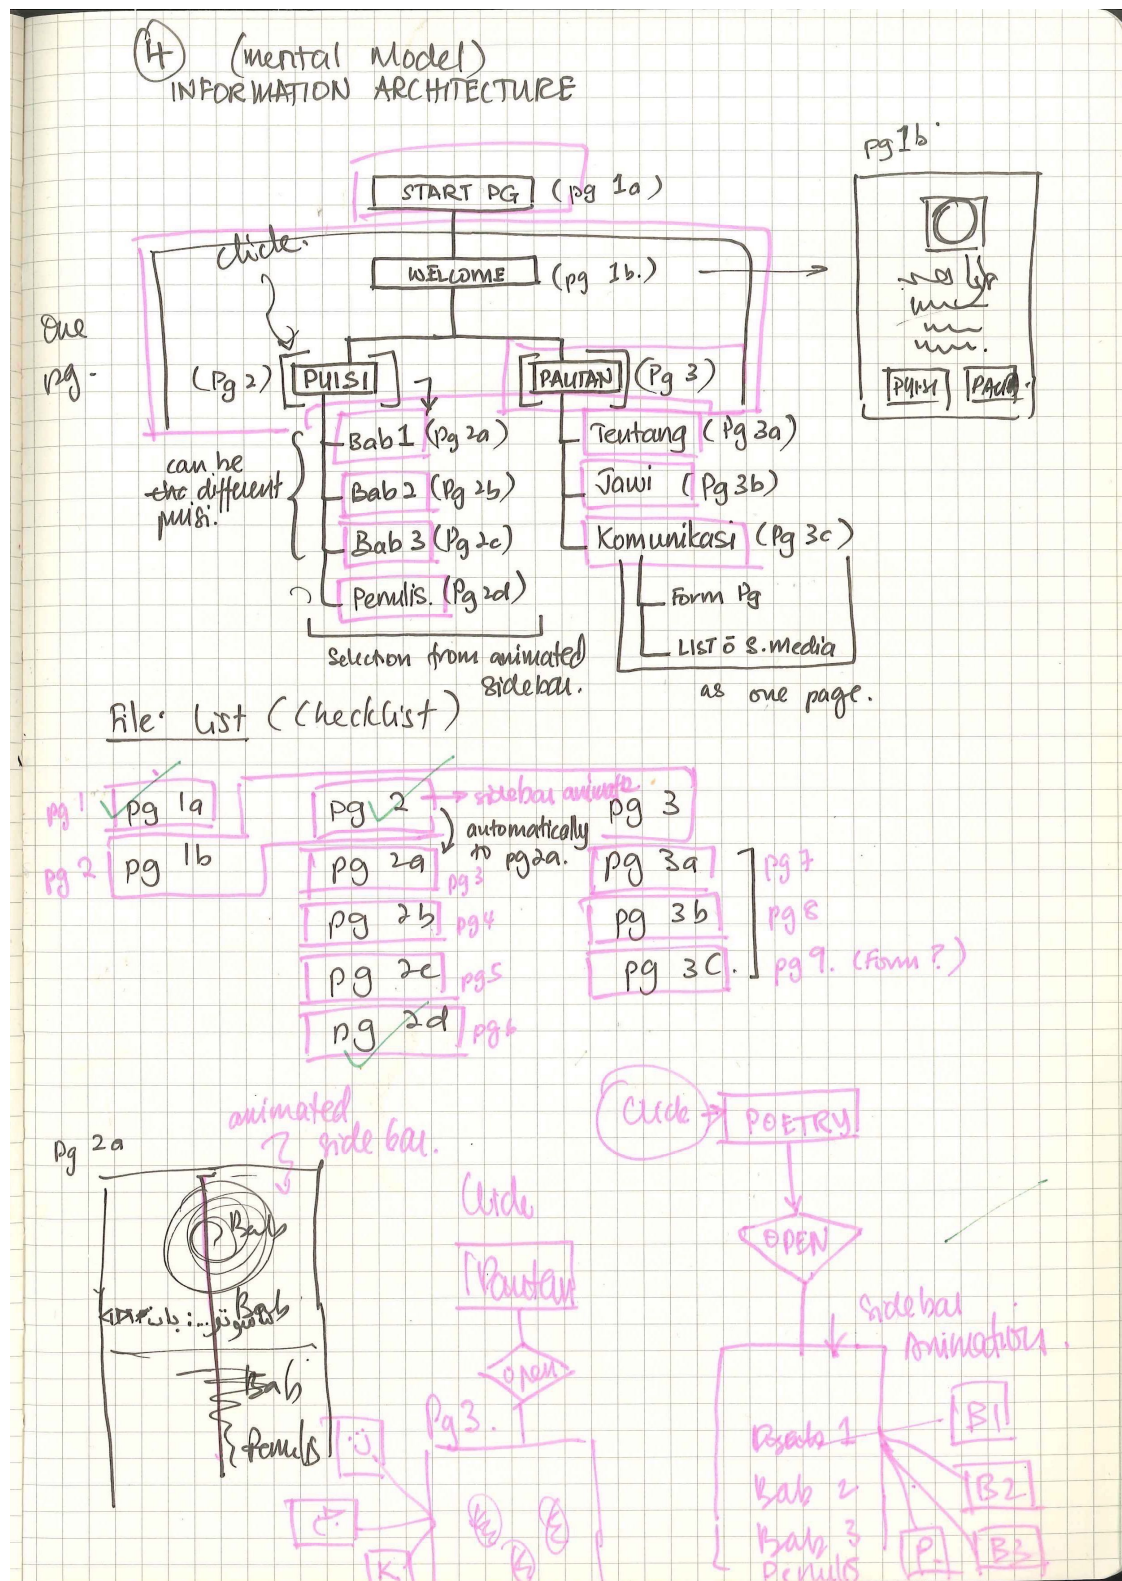 4 (mental Model)
INFORMATION ARCHITECTURE
pg 1b.
START PG (pg 1a)
click.
WELCOME (pg 1b.)
One
pg.
(Pg 2) PUISI
PAUTAN (Pg 3)
PUISI
Bab 1 (pg 2a)
Bab 2 (Pg 2b)
Bab 3 (Pg 2c)
Penulis. (Pg 2d)
can be
the different
puisi.
Selection from animated
sidebar.
Tentang (Pg 3a)
Jawi (Pg 3b)
Komunikasi (Pg 3c)
Form Pg
LIST ō S.media
as one page.
File List (Checklist)
pg 1 pg 1a
pg 2 pg 1b
pg 2 → sidebar animate
automatically
to pg2a.
pg 2a pg3
pg 2b pg4
pg 2c pg5
pg 2d pg6
pg 3
pg 3a pg 7
pg 3b pg 8
pg 3C. pg 9. (Form?)
pg 2a
animated
side bar.
Bab
Bab
Bab
Penulis
Click
Pautan
open
Pg3.
K
Click
POETRY
OPEN
Sidebar
Animation.
1
Bab 2
Bab 3
Penulis
B1
B2
B3
P.